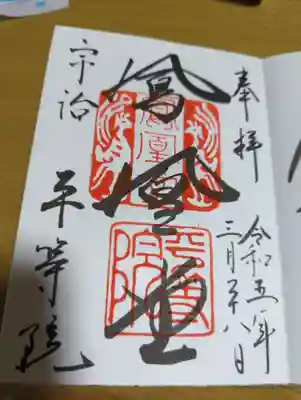 奉拝
令和五年
三月二十八日
鳳凰堂
宇治
平等院